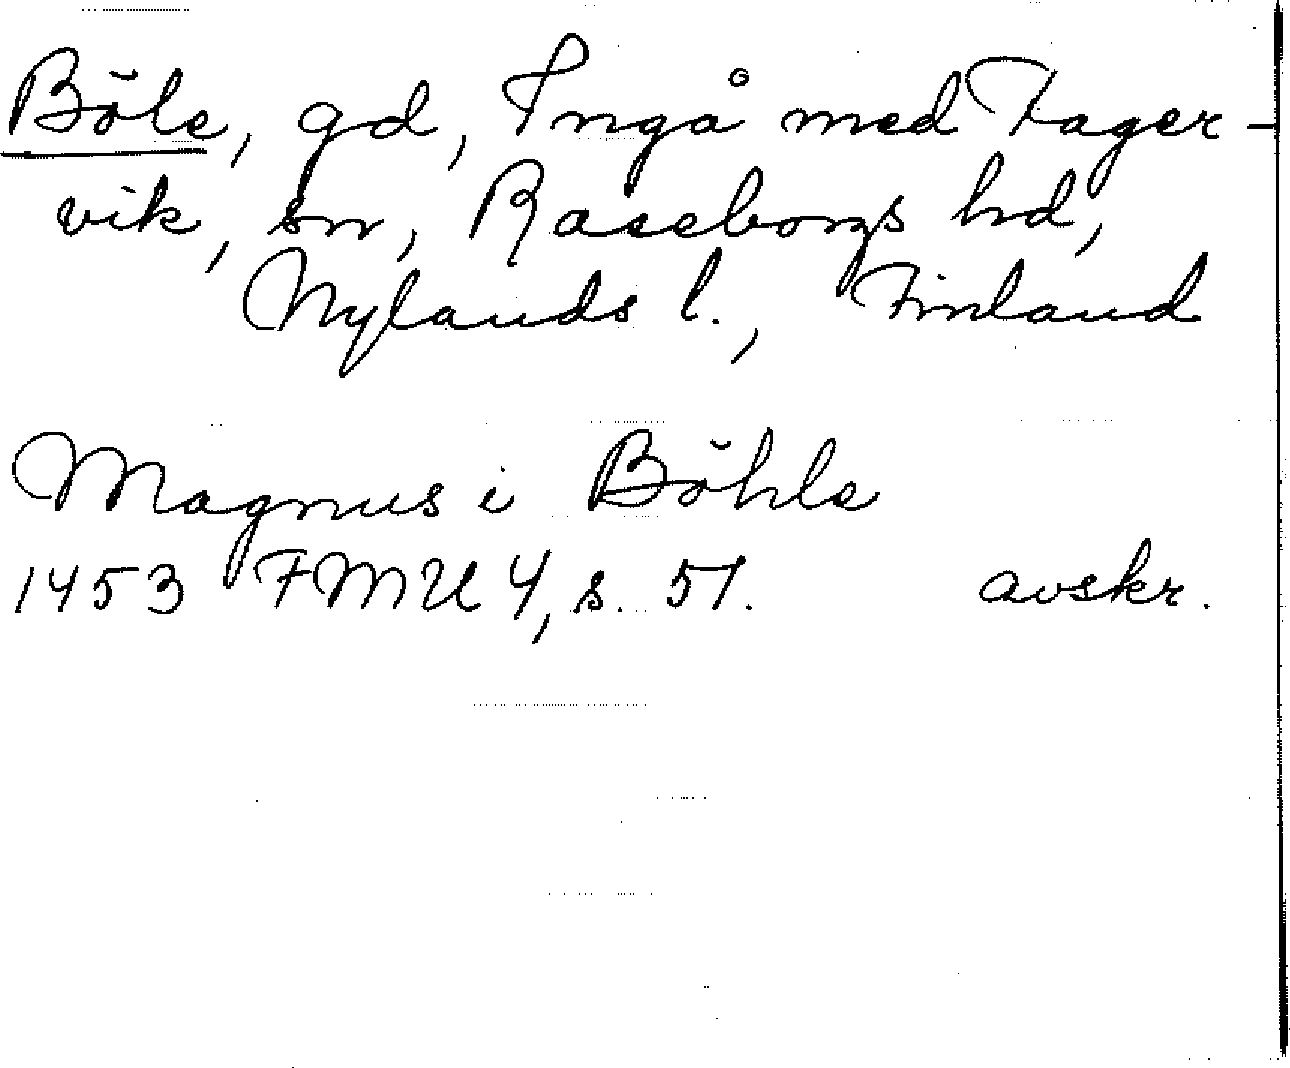 Böle, gd, Ingå med Fager-
vik, sn, Raseborgs hd,
Nylands l., Finland
Magnus i Böhle
1453 FMU 4, s. 51. avskr.